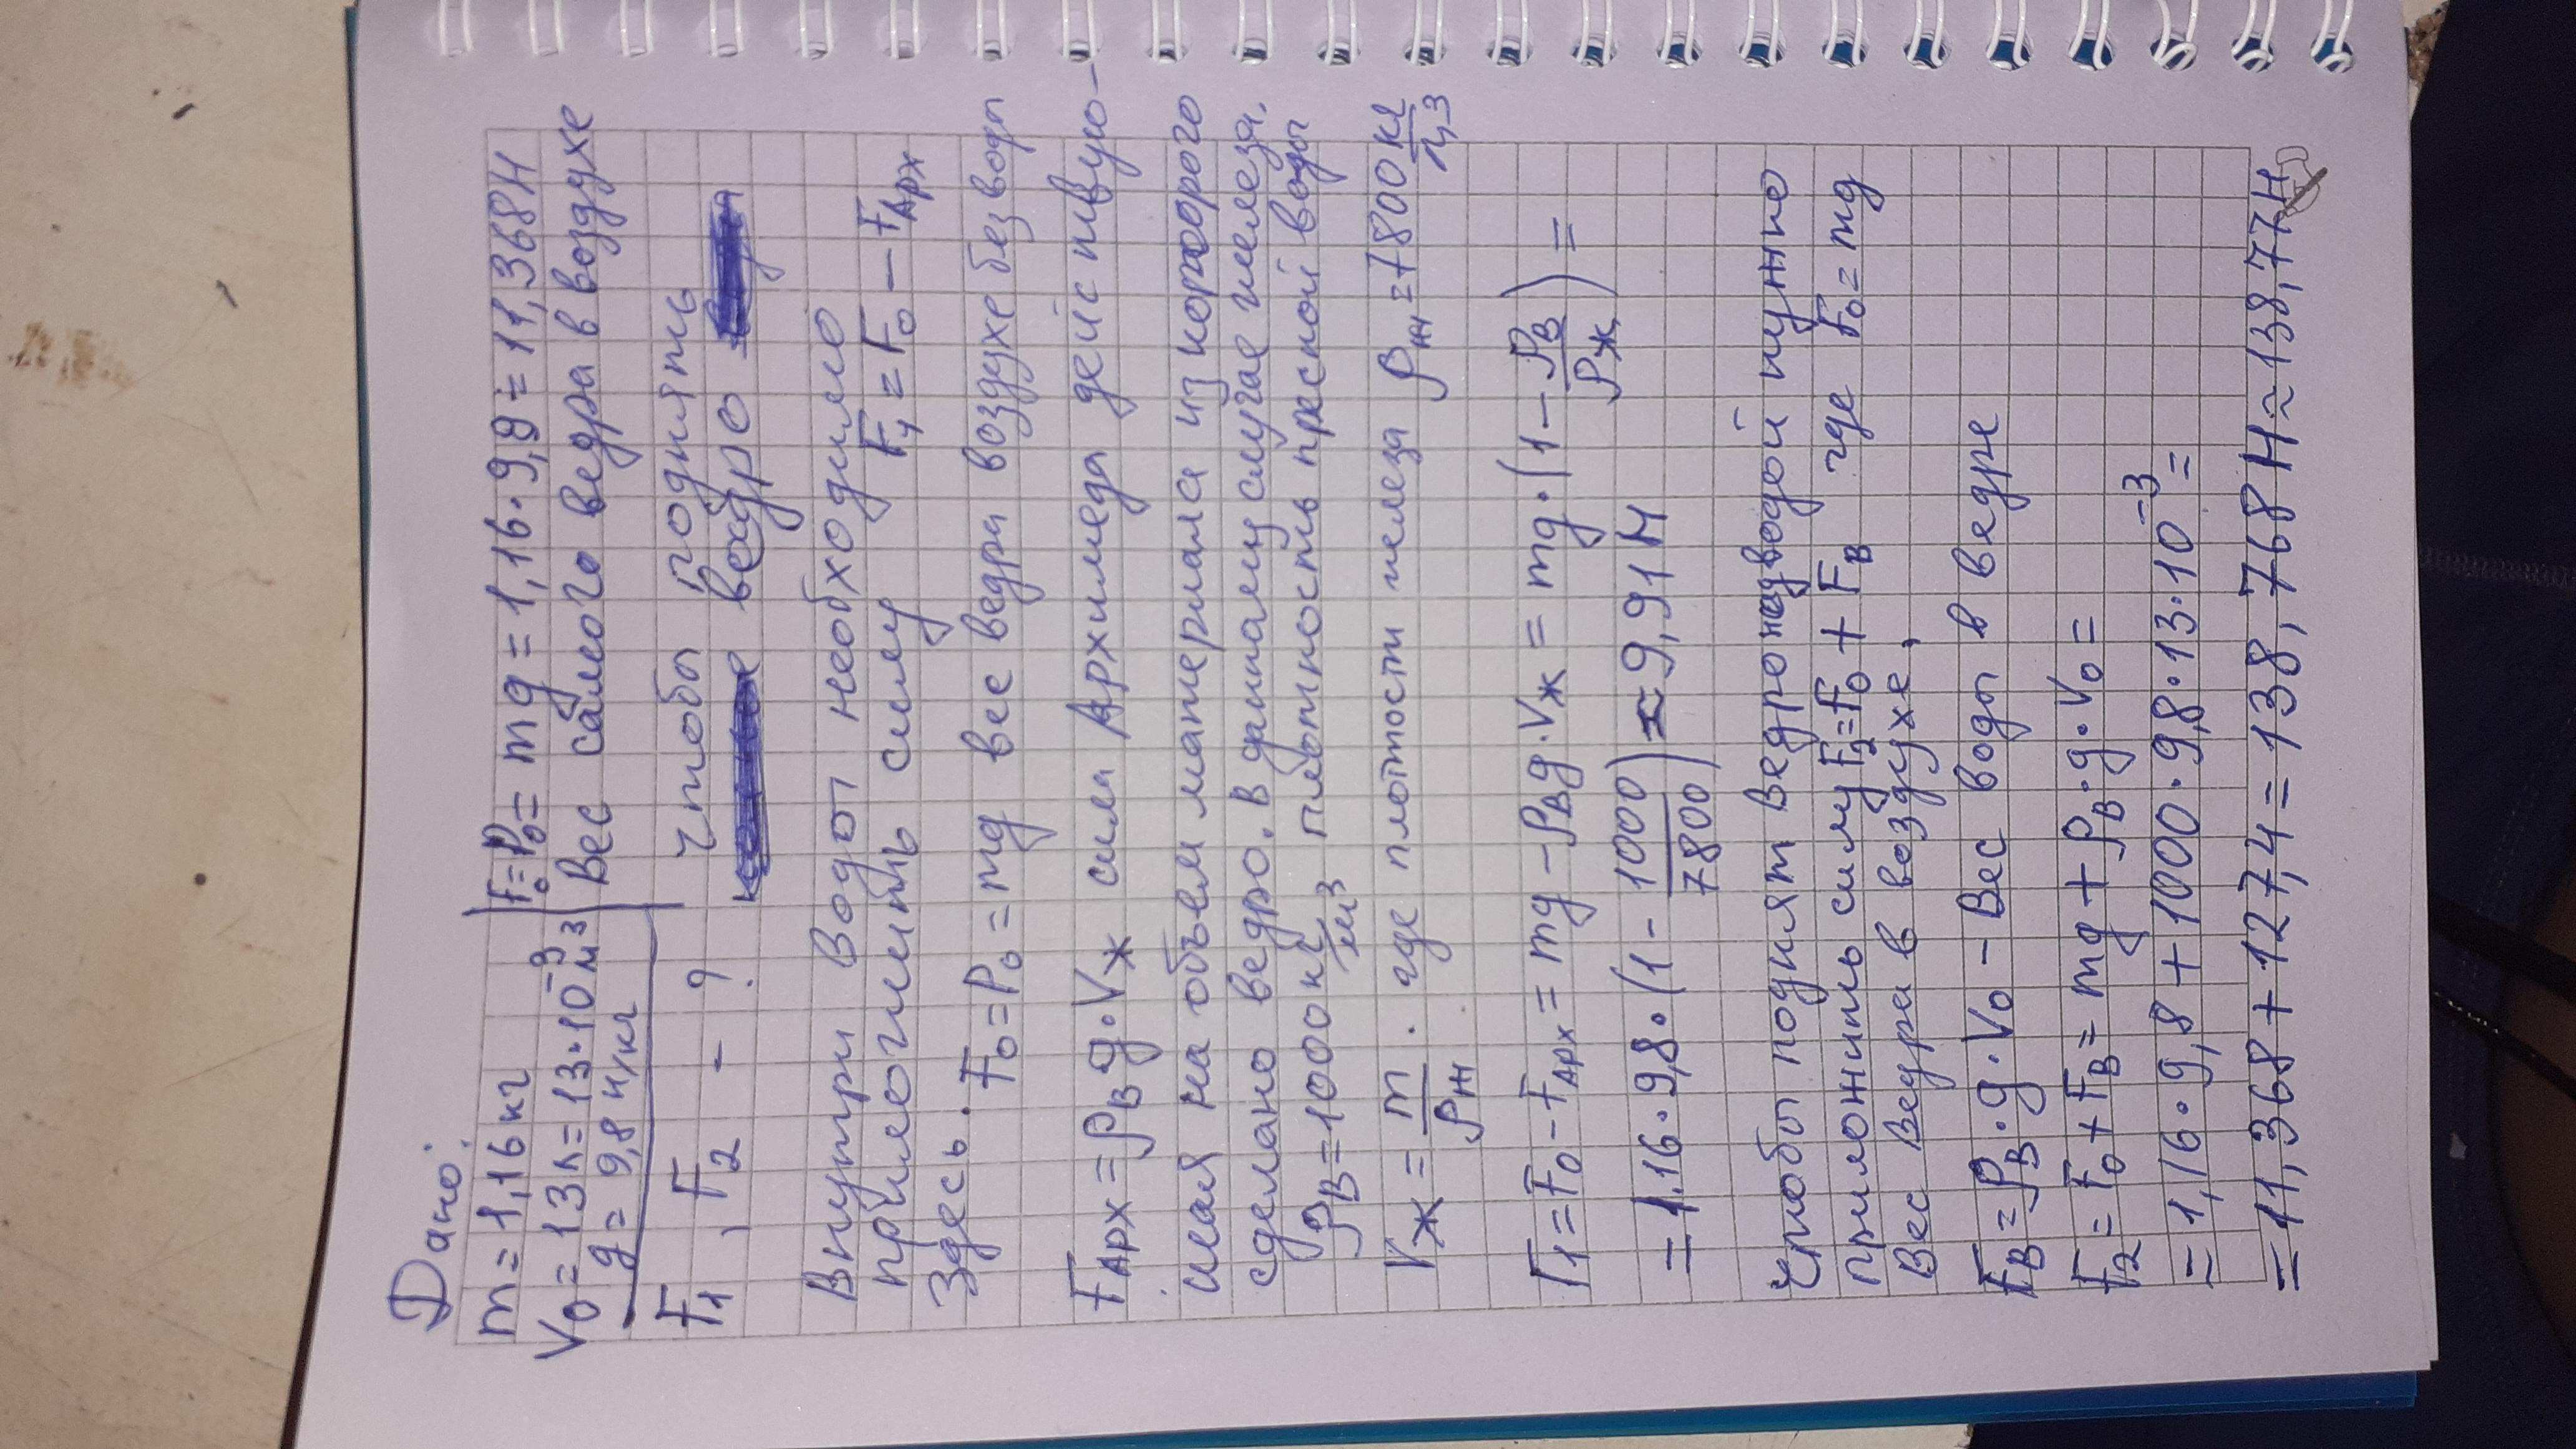 Дано:
m = 1,16 кг | F₀=P₀ = mg = 1,16·9,8 = 11,368 Н
V₀ = 13 л = 13·10⁻³ м³ | Вес самого ведра в воздухе
g = 9,8 н/кг
F₁, F₂ - ? чтобы поднять
ведро
внутри воды необходимо
приложить силу F₁ = F₀ − F_Арх
Здесь. F₀ = P₀ = mg вес ведра воздухе без воды
F_АРХ = ρ_В g·V_Ж сила Архимеда действую-
щая на объем материала из которого
сделано ведро. в данном случае железа.
ρ_В = 1000 кг/м³ плотность пресной воды
V_Ж = m/ρ_Ж. где плотности железа ρ_Ж = 7800 кг/м³
F₁ = F₀ − F_АРХ = mg − ρ_В g·V_Ж = mg·(1 − ρ_В/ρ_Ж) =
= 1.16·9,8·(1 − 1000/7800) ≈ 9,91 Н
Чтобы поднят ведро надводой нужно
приложить силу F₂ = F₀ + F_В где F₀ = mg
Вес ведра в воздухе,
F_В = ρ_В·g·V₀ − Вес воды в ведре
F₂ = F₀ + F_В = mg + ρ_В·g·V₀ =
= 1,16·9,8 + 1000·9,8·13·10⁻³ =
= 11,368 + 127,4 = 138,768 Н ≈ 138,77 Н